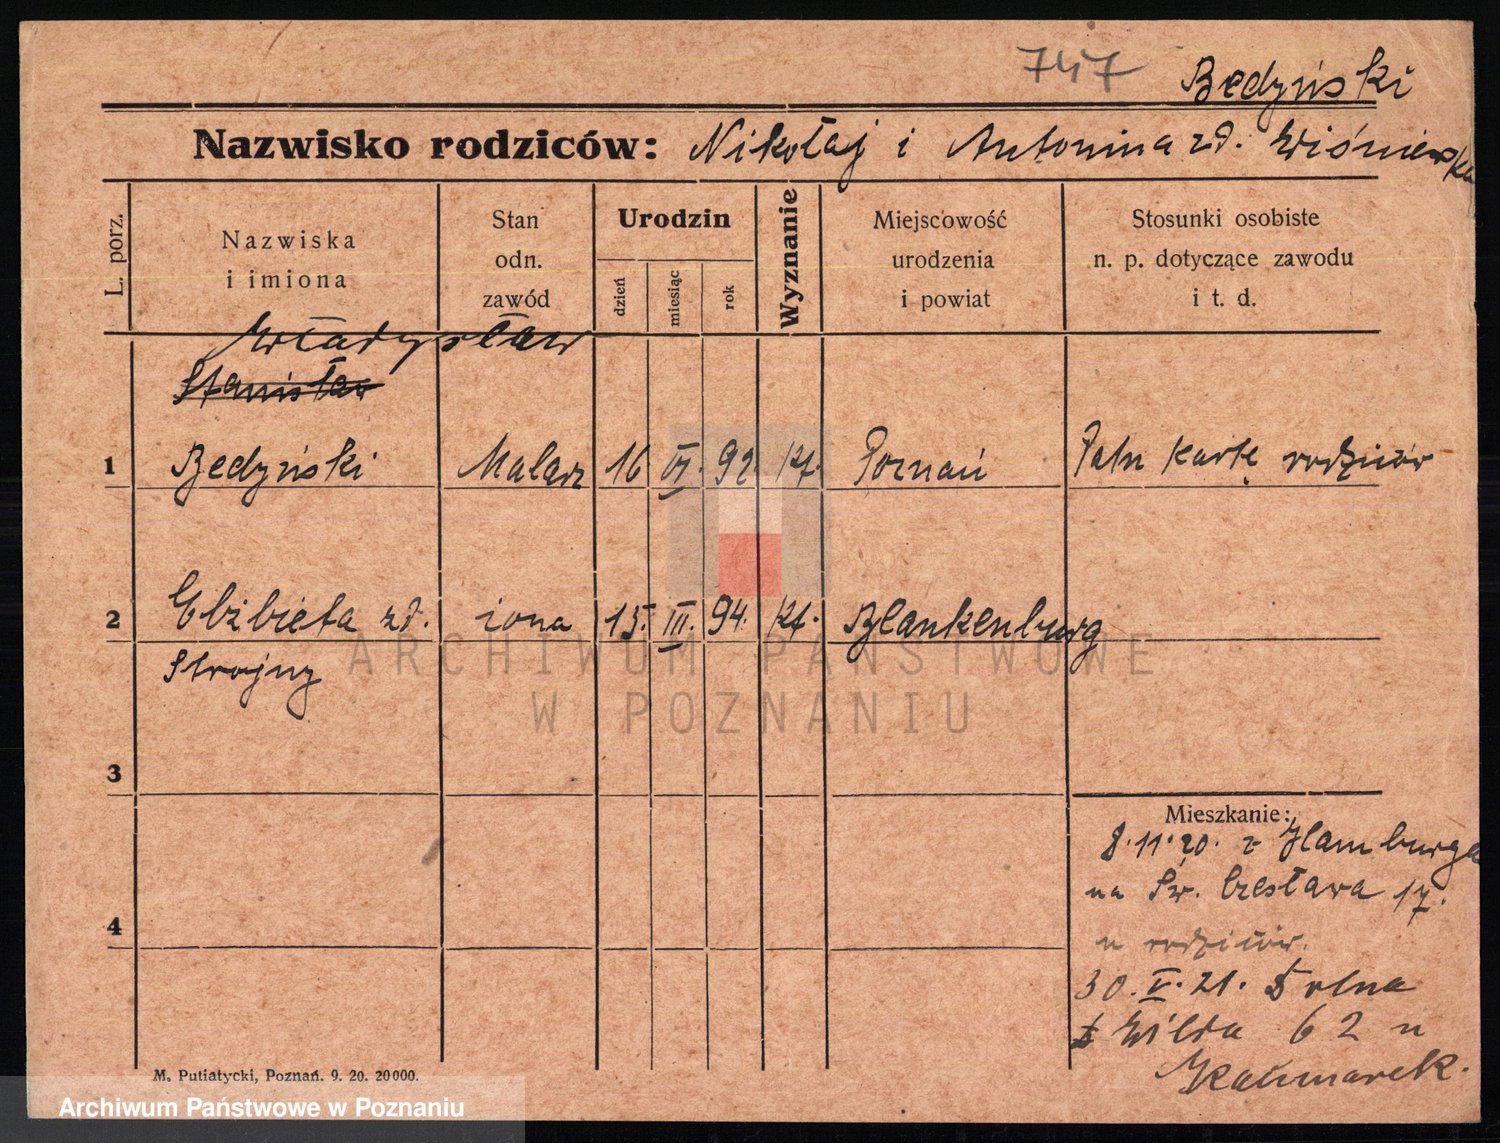 747 Bedyński
Nazwisko rodziców: Nikołaj i Antonina zd. Wiśniewska
L. porz.
Nazwiska
i imiona
Stan
odn.
zawód
Urodzin
dzień
miesiąc
rok
Wyznanie
Miejscowość
urodzenia
i powiat
Stosunki osobiste
n. p. dotyczące zawodu
i t. d.
Władysław
Stanisław
1 Bedyński Malarz 16 VI. 92 kt. Poznań Patrz kartę rodziców
2 Elżbieta zd. żona 15. III. 94. kt. Blankenburg
Strojny
ARCHIWUM PAŃSTWOWE
W POZNANIU
3
Mieszkanie:
8.11.20. z Hamburga
na Św. Czesława 17.
4
u rodziców.
30. V. 21. Dolna
Wilda 62 u
M. Putiatycki, Poznań. 9. 20. 20000.
Archiwum Państwowe w Poznaniu